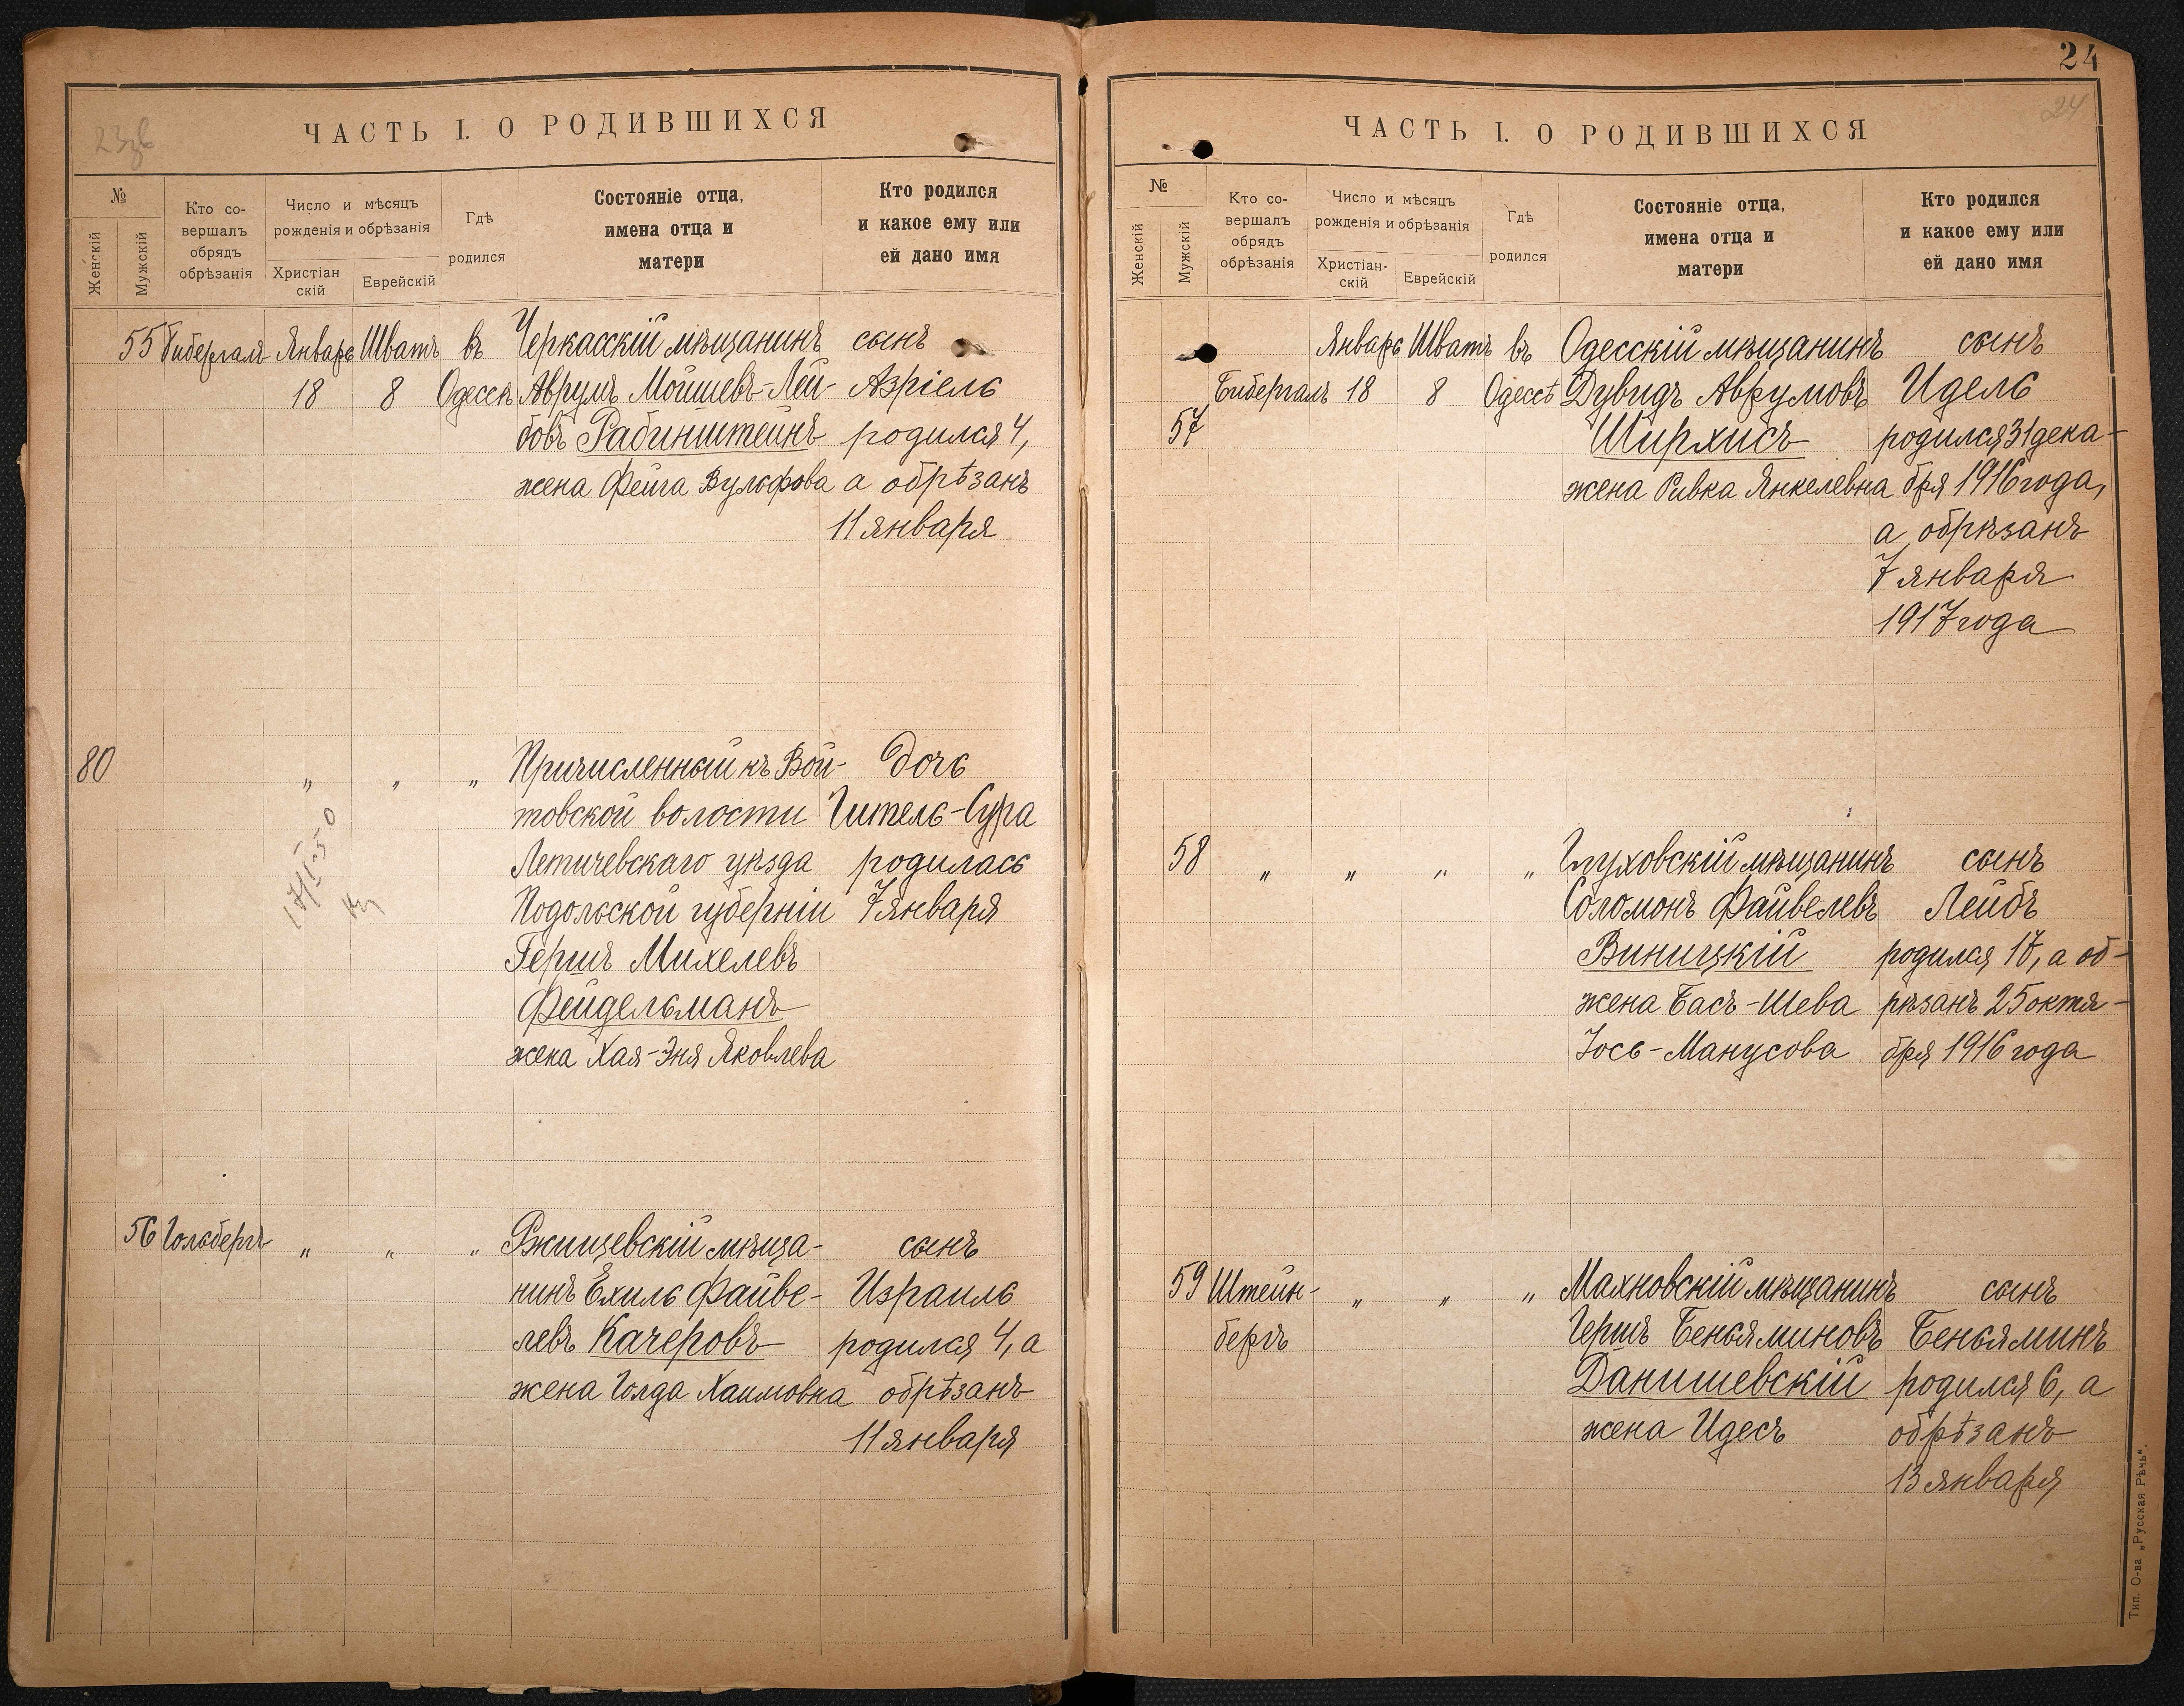 24
23зв
ЧАСТЬ I. О РОДИВШИХСЯ
№
Женскій
Мужскій
Кто со-
вершалъ
обрядъ
обрѣзанія
Число и мѣсяцъ
рожденія и обрѣзанія
Христіан
скій
Еврейскій
Гдѣ
родился
Состояніе отца,
имена отца и
матери
Кто родился
и какое ему или
ей дано имя
55 Бибергалъ Январь Шватъ въ Черкасскій мѣщанинъ сынъ
18 8 Одессѣ Аврумъ Мойшевъ-Лей- Азріель
бовъ Рабинштейнъ родился 4,
жена Фейга Вульфова а обрѣзанъ
11 января
80 " " " Причисленный къ Вой- дочь
товской волости Гитель-Сура
Летичевскаго уѣзда родилась
Подольской губерніи 7 января
Гершъ Михелевъ
Фейдельманъ
жена Хая-Эня Яковлева
17/I-50
56 Гольбергъ " " " Ржищевскій мѣща- сынъ
нинъ Ехиль Файве- Израиль
левъ Качеровъ родился 4, а
жена Голда Хаимовна обрѣзанъ
11 января
24
ЧАСТЬ I. О РОДИВШИХСЯ
№
Женскій
Мужскій
Кто со-
вершалъ
обрядъ
обрѣзанія
Число и мѣсяцъ
рожденія и обрѣзанія
Христіан-
скій
Еврейскій
Гдѣ
родился
Состояніе отца,
имена отца и
матери
Кто родился
и какое ему или
ей дано имя
Январь Шватъ въ Одесскій мѣщанинъ сынъ
Бибергалъ 18 8 Одессѣ Дувидъ Аврумовъ Идель
57 Ширхисъ родился 31 дека-
жена Ривка Янкелевна бря 1916 года,
а обрѣзанъ
7 января
1917 года
58 " " " " Глуховскій мѣщанинъ сынъ
Соломонъ Файвелевъ Лейбъ
Виницкій родился 17, а об-
жена Бася-Шева рѣзанъ 25 октя-
Іось-Манусова бря 1916 года
59 Штейн- " " " Махновскій мѣщанинъ сынъ
бергъ Гершъ Беньяминовъ Беньяминъ
Данишевскій родился 6, а
жена Идесъ обрѣзанъ
13 января
Тип. О-ва „Русская Рѣчь".